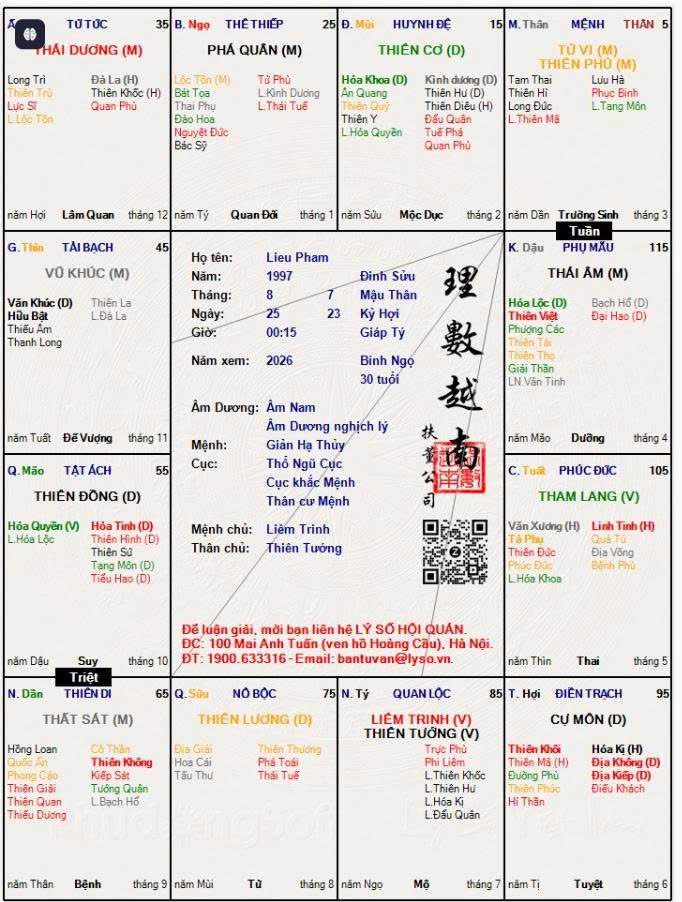 TỬ TỨC 35
THÁI DƯƠNG (M)
Long Trì
Thiên Trù
Lực Sĩ
L.Lộc Tồn
Đà La (H)
Thiên Khốc (H)
Quan Phủ
năm Hợi Lâm Quan tháng 12
B. Ngọ THÊ THIẾP 25
PHÁ QUÂN (M)
Lộc Tồn (M)
Bát Tọa
Thai Phụ
Đào Hoa
Nguyệt Đức
Bác Sỹ
Tử Phù
L.Kình Dương
L.Thái Tuế
năm Tý Quan Đới tháng 1
Đ. Mùi HUYNH ĐỆ 15
THIÊN CƠ (D)
Hóa Khoa (D)
Ân Quang
Thiên Quý
Thiên Y
L.Hóa Quyền
Kình dương (D)
Thiên Hư (D)
Thiên Diêu (H)
Đẩu Quân
Tuế Phá
Quan Phủ
năm Sửu Mộc Dục tháng 2
M. Thân MỆNH THÂN 5
TỬ VI (M)
THIÊN PHỦ (M)
Tam Thai
Thiên Hỉ
Long Đức
L.Thiên Mã
Lưu Hà
Phục Binh
L.Tang Môn
năm Dần Trường Sinh tháng 3
Tuần
G. Thìn TÀI BẠCH 45
VŨ KHÚC (M)
Văn Khúc (D)
Hữu Bật
Thiếu Âm
Thanh Long
Thiên La
L.Đà La
năm Tuất Đế Vượng tháng 11
Họ tên: Lieu Pham
Năm: 1997 Đinh Sửu
Tháng: 8 7 Mậu Thân
Ngày: 25 23 Kỷ Hợi
Giờ: 00:15 Giáp Tý
Năm xem: 2026 Bính Ngọ
30 tuổi
Âm Dương: Âm Nam
Âm Dương nghịch lý
Mệnh: Giản Hạ Thủy
Cục: Thổ Ngũ Cục
Cục khắc Mệnh
Thân cư Mệnh
Mệnh chủ: Liêm Trinh
Thân chủ: Thiên Tướng
理數越南
扶董公司
Để luận giải, mời bạn liên hệ LÝ SỐ HỘI QUÁN.
ĐC: 100 Mai Anh Tuấn (ven hồ Hoàng Cầu), Hà Nội.
ĐT: 1900.633316 - Email: bantuvan@lyso.vn.
K. Dậu PHỤ MẪU 115
THÁI ÂM (M)
Hóa Lộc (D)
Thiên Việt
Phượng Các
Thiên Tài
Thiên Thọ
Giải Thần
LN.Văn Tinh
Bạch Hổ (D)
Đại Hao (D)
năm Mão Dưỡng tháng 4
Q. Mão TẬT ÁCH 55
THIÊN ĐỒNG (D)
Hóa Quyền (V)
L.Hóa Lộc
Hỏa Tinh (D)
Thiên Hình (D)
Thiên Sứ
Tang Môn (D)
Tiểu Hao (D)
năm Dậu Suy tháng 10
Triệt
C. Tuất PHÚC ĐỨC 105
THAM LANG (V)
Văn Xương (H)
Tả Phụ
Thiên Đức
Phúc Đức
L.Hóa Khoa
Linh Tinh (H)
Quả Tú
Địa Võng
Bệnh Phù
năm Thìn Thai tháng 5
N. Dần THIÊN DI 65
THẤT SÁT (M)
Hồng Loan
Quốc Ấn
Phong Cáo
Thiên Giải
Thiên Quan
Thiếu Dương
Cô Thần
Thiên Không
Kiếp Sát
Tướng Quân
L.Bạch Hổ
năm Thân Bệnh tháng 9
Q. Sửu NÔ BỘC 75
THIÊN LƯƠNG (D)
Địa Giải
Hoa Cái
Tấu Thư
Thiên Thương
Phá Toái
Thái Tuế
năm Mùi Tử tháng 8
N. Tý QUAN LỘC 85
LIÊM TRINH (V)
THIÊN TƯỚNG (V)
Trực Phù
Phi Liêm
L.Thiên Khốc
L.Thiên Hư
L.Hóa Kị
L.Đẩu Quân
năm Ngọ Mộ tháng 7
T. Hợi ĐIỀN TRẠCH 95
CỰ MÔN (D)
Thiên Khôi
Thiên Mã (H)
Đường Phù
Thiên Phúc
Hỉ Thần
Hóa Kị (H)
Địa Không (D)
Địa Kiếp (D)
Điếu Khách
năm Tị Tuyệt tháng 6